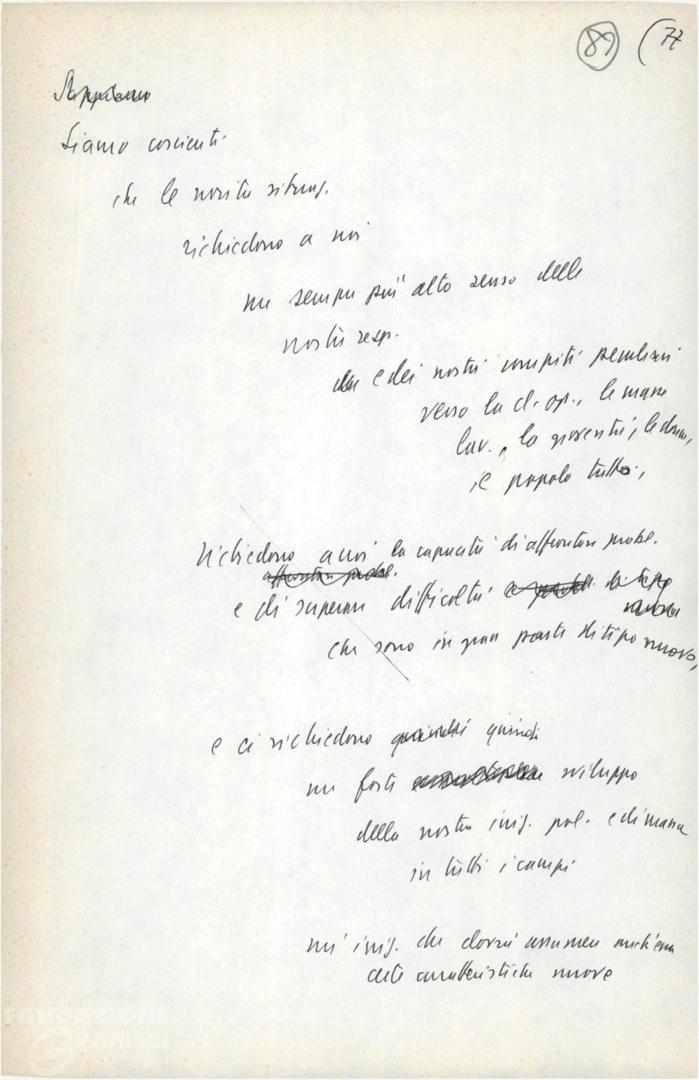 89 (77
Sappiamo
Siamo coscienti
che le nostre situaz.
richiedono a noi
un sempre più alto senso delle
nostre resp.
e dei nostri compiti peculiari
verso la cl. op., le masse
lav., la gioventù, le donne,
il popolo tutto,
richiedono a noi la capacità di affrontare probl.
affrontare probl.
e di superare difficoltà di tipo
nuovo
che sono in gran parte di tipo nuovo,
e ci richiedono quindi quindi
un forte sviluppo
della nostra iniz. pol. e di massa
in tutti i campi
un' iniz. che dovrà assumere anch'essa
delle caratteristiche nuove